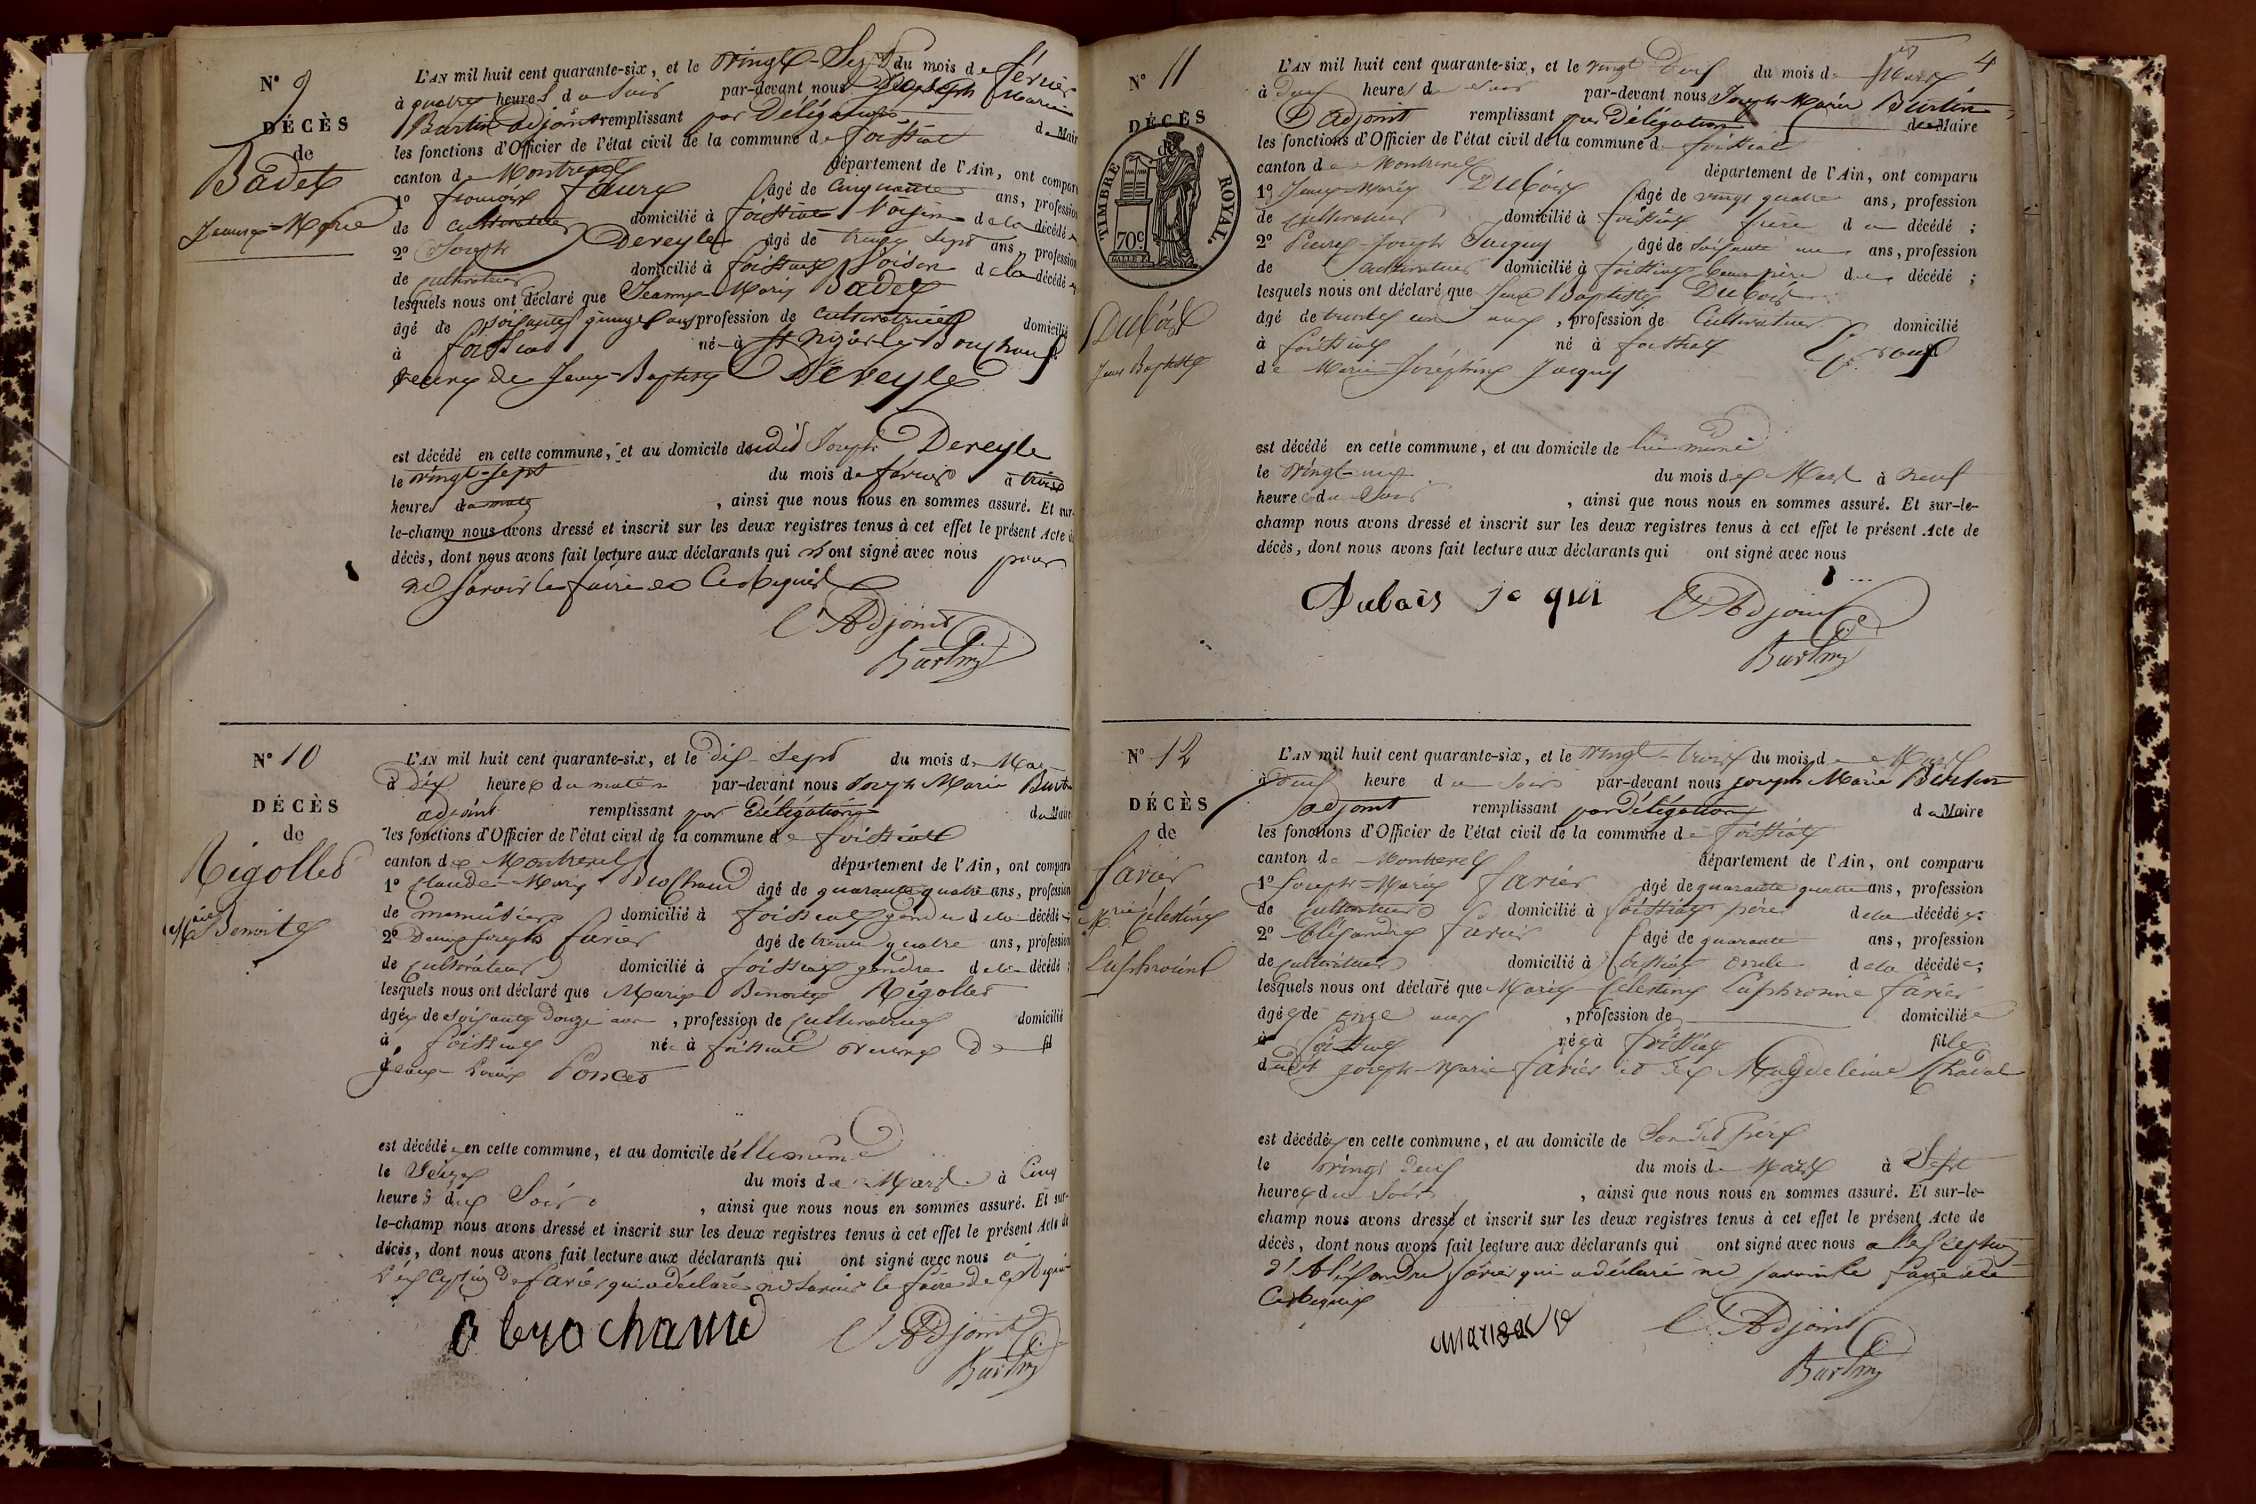 N° 9
DÉCÈS
de
Badet
Jeanne-Marie
L'AN mil huit cent quarante-six, et le vingt-Sept du mois de février
à quatre heures du Soir par-devant nous Joseph Marie
Burtin adjoint remplissant par Délégation de Maire
les fonctions d'Officier de l'état civil de la commune de foissiat
canton de Montrevel département de l'Ain, ont comparu
1° françois faure âgé de Cinquante ans, profession
de Cultivateur domicilié à foissiat Voisin de la décédée
2° Joseph Dereyle âgé de trente Sept ans, profession
de Cultivateur domicilié à foissiat Voisin de la décédée
lesquels nous ont déclaré que Jeanne-Marie Badet
âgé de soixante quinze ans profession de cultivatrice domicilié
à foissiat né à St Nizier le Bouchoux
veuve de Jean-Baptiste Dereyle
est décédé en cette commune, et au domicile dudit Joseph Dereyle
le vingt-sept du mois de février à trois
heures du matin, ainsi que nous nous en sommes assuré. Et sur-
le-champ nous avons dressé et inscrit sur les deux registres tenus à cet effet le présent Acte de
décès, dont nous avons fait lecture aux déclarants qui n'ont signé avec nous pour
ne savoir le faire de Ce Requis
L'Adjoint
Burtin
N° 10
DÉCÈS
de
Rigollet
Marie Benoite
L'AN mil huit cent quarante-six, et le dix-Sept du mois de Mars
à dix heures du matin par-devant nous Joseph Marie Burtin
adjoint remplissant par Délégation du Maire
les fonctions d'Officier de l'état civil de la commune de foissiat
canton de Montrevel département de l'Ain, ont comparu
1° Claude-Marie Brochand âgé de quarante quatre ans, profession
de menuisier domicilié à foissiat gendre de la décédée
2° Denis Joseph favier âgé de trente quatre ans, profession
de Cultivateur domicilié à foissiat gendre de la décédé;
lesquels nous ont déclaré que Marie Benoite Rigollet
âgée de Soixante Douze ans, profession de Cultivatrice domicilié
à foissiat née à foissiat veuve De fil
Jean-Louis Poncet
est décédée en cette commune, et au domicile d'elle même
le Seize du mois de Mars à Cinq
heures du Soir, ainsi que nous nous en sommes assuré. Et sur-
le-champ nous avons dressé et inscrit sur les deux registres tenus à cet effet le présent Acte de
décès, dont nous avons fait lecture aux déclarants qui ont signé avec nous à
l'exception de favier qui a déclaré ne Savoir le faire de Ce Requis
brochand
L'Adjoint
Burtin
4
N° 11
DÉCÈS
TIMBRE ROYAL.
70c
Dubois
Jean Baptiste
L'AN mil huit cent quarante-six, et le vingt Deux du mois de Mars
à Deux heures du Soir par-devant nous Joseph-Marie Burtin
adjoint remplissant par Délégation du Maire
les fonctions d'Officier de l'état civil de la commune de foissiat
canton de Montrevel département de l'Ain, ont comparu
1° Jean-Marie Dubois âgé de vingt quatre ans, profession
de Cultivateur domicilié à foissiat frère du décédé;
2° Pierre-Joseph Jacquy âgé de Soixante un ans, profession
de Cultivateur domicilié à foissiat beau père du décédé;
lesquels nous ont déclaré que Jean Baptiste Dubois
âgé de trente un ans, profession de Cultivateur domicilié
à foissiat né à foissiat Epoux
de Marie-Joséphine Jacquy
est décédé en cette commune, et au domicile de lui même
le vingt-un du mois de Mars à neuf
heure du Soir, ainsi que nous nous en sommes assuré. Et sur-le-
champ nous avons dressé et inscrit sur les deux registres tenus à cet effet le présent Acte de
décès, dont nous avons fait lecture aux déclarants qui ont signé avec nous
Dubois ja qui
L'Adjoint
Burtin
N° 12
DÉCÈS
de
favier
Mrie Célestine
Euphrosine
L'AN mil huit cent quarante-six, et le vingt-trois du mois de Mars
à Deux heure du Soir par-devant nous Joseph Marie Burtin
adjoint remplissant par Délégation du Maire
les fonctions d'Officier de l'état civil de la commune de foissiat
canton de Montrevel département de l'Ain, ont comparu
1° Joseph-Marie favier âgé de quarante quatre ans, profession
de Cultivateur domicilié à foissiat père de la décédée;
2° Alexandre favier âgé de quarante ans, profession
de Cultivateur domicilié à foissiat oncle de la décédée;
lesquels nous ont déclaré que Marie Celestine Euphrosine favier
âgée de onze ans, profession de domiciliée
à foissiat née à foissiat fille
dudit Joseph-Marie favier et de Magdeleine Chadal
est décédée en cette commune, et au domicile de Son dit père
le vingt Deux du mois de Mars à Sept
heures du Soir, ainsi que nous nous en sommes assuré. Et sur-le-
champ nous avons dressé et inscrit sur les deux registres tenus à cet effet le présent Acte de
décès, dont nous avons fait lecture aux déclarants qui ont signé avec nous a l'exception
d'Alexandre favier qui a déclaré ne savoir le faire de
Ce Requis
L'Adjoint
Burtin